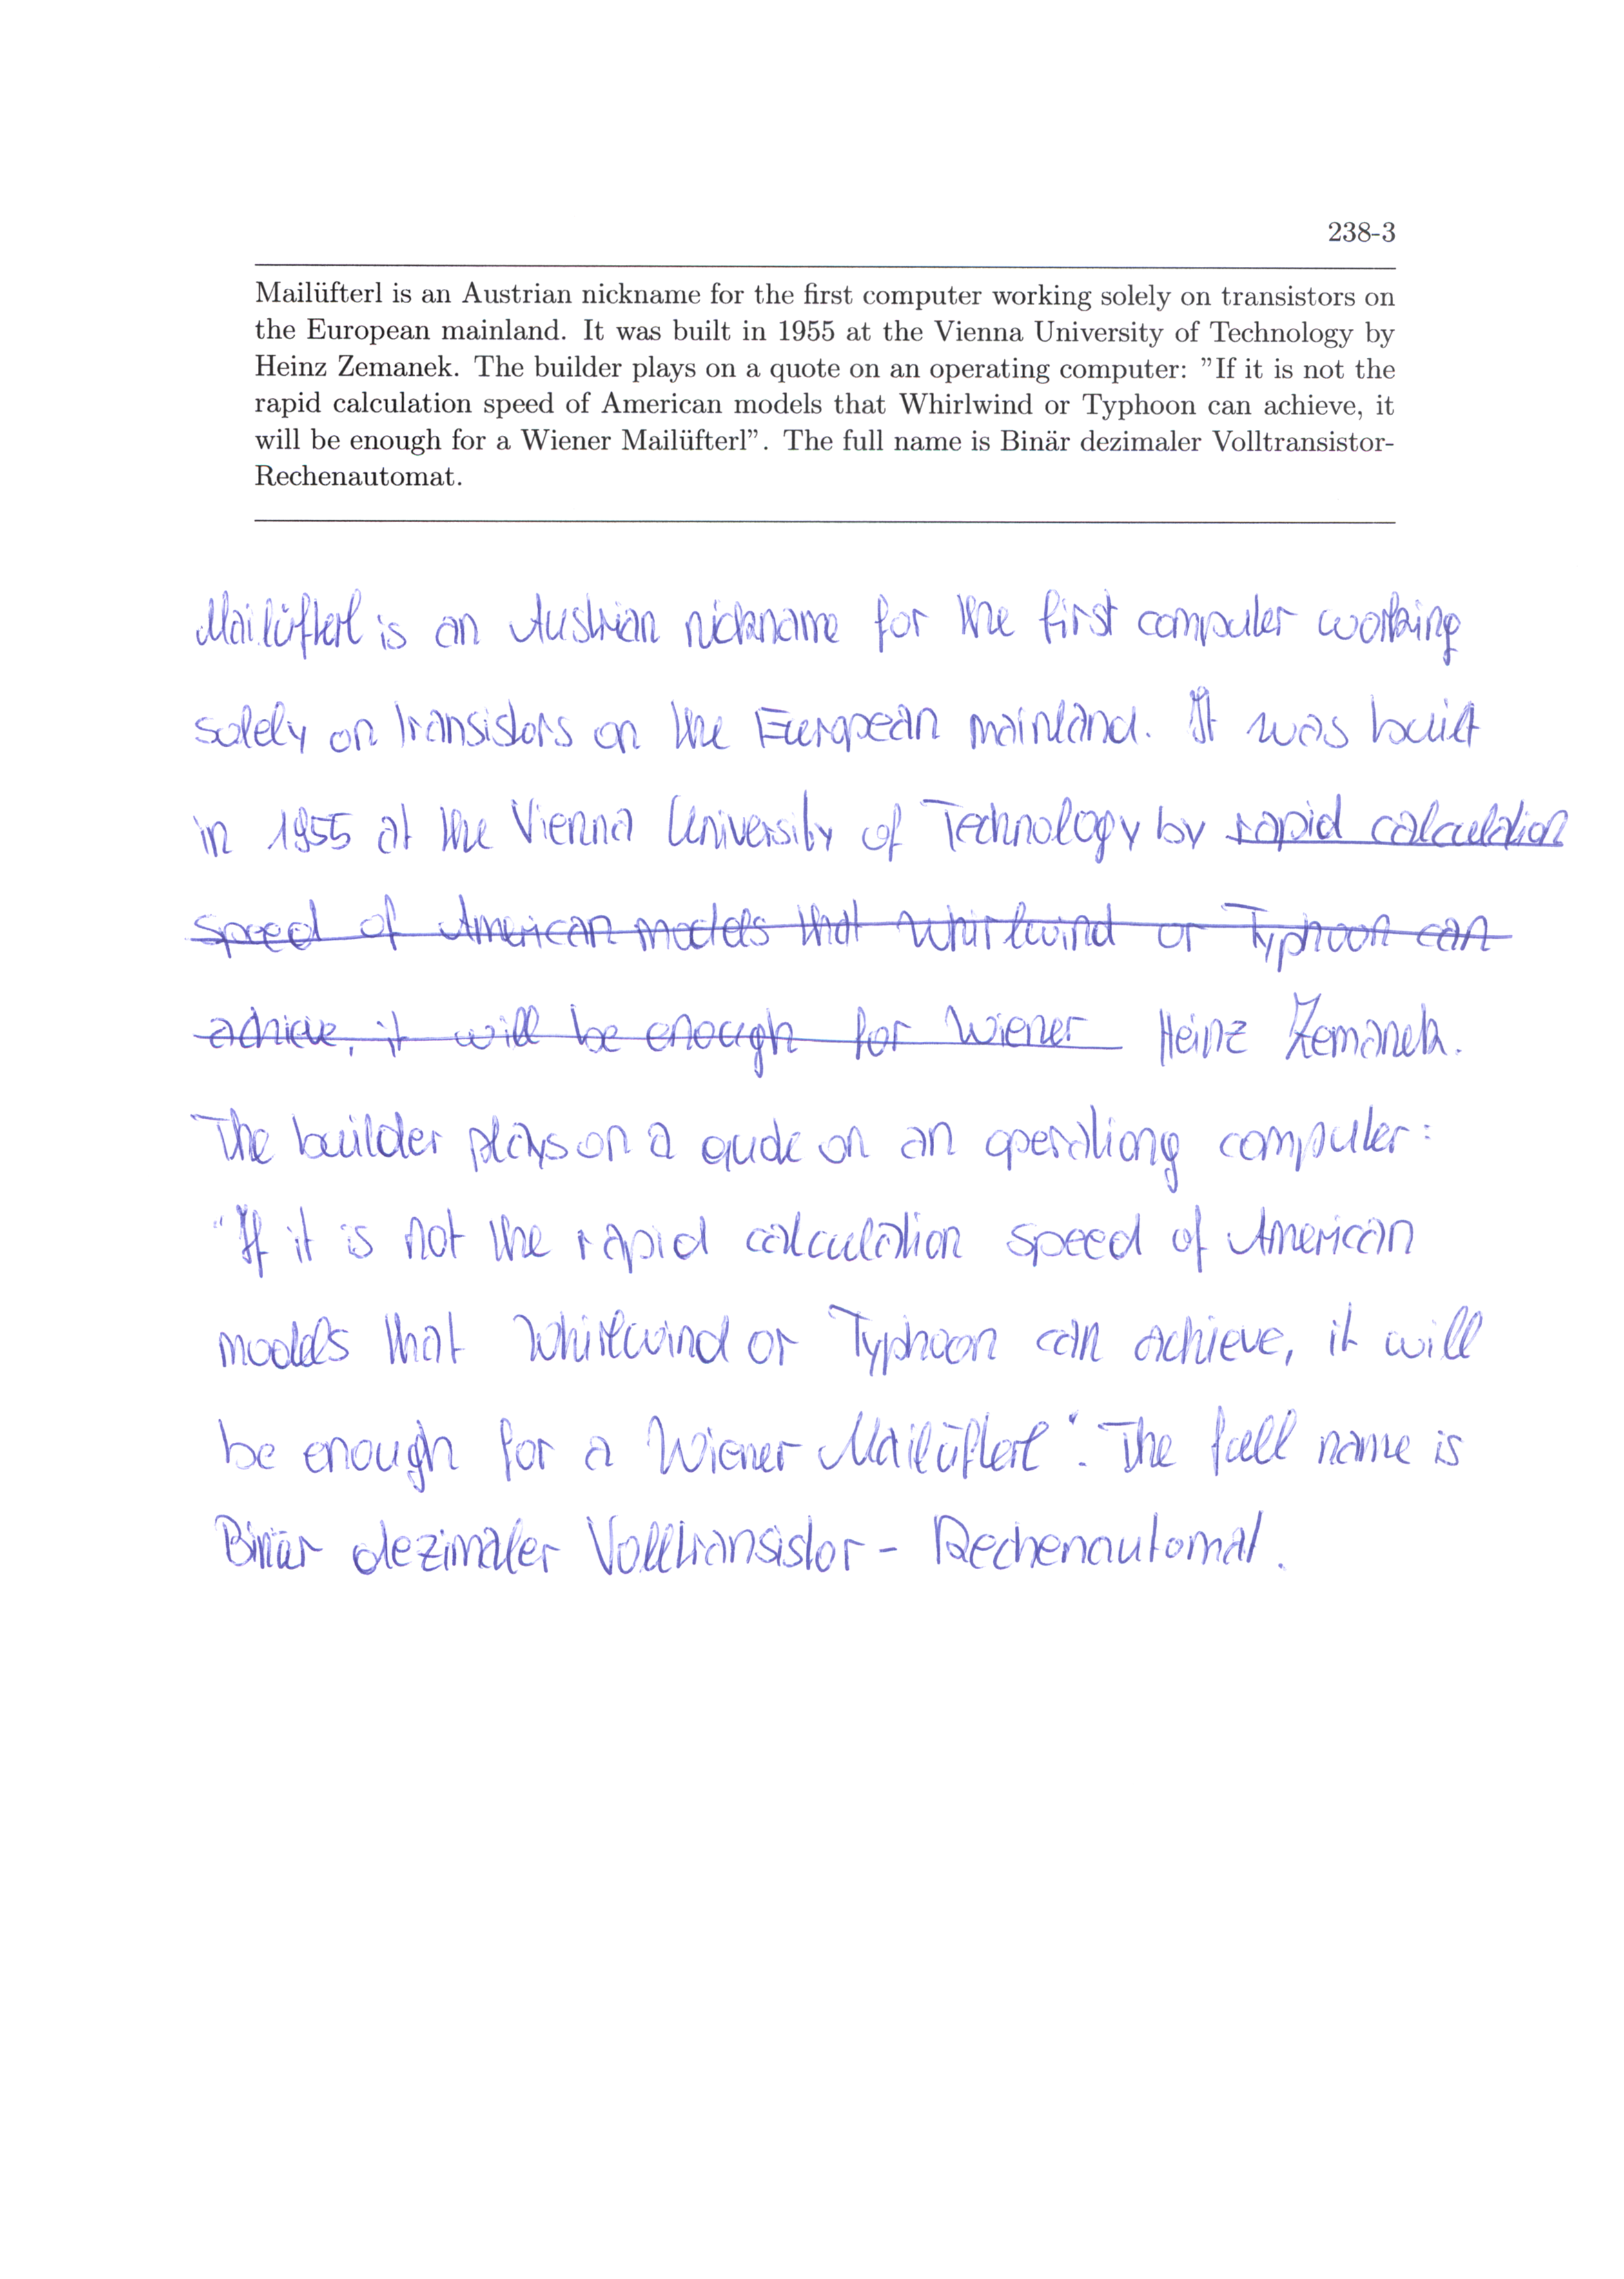 238-3
Mailüfterl is an Austrian nickname for the first computer working solely on transistors on
the European mainland. It was built in 1955 at the Vienna University of Technology by
Heinz Zemanek. The builder plays on a quote on an operating computer: ”If it is not the
rapid calculation speed of American models that Whirlwind or Typhoon can achieve, it
will be enough for a Wiener Mailüfterl”. The full name is Binär dezimaler Volltransistor-
Rechenautomat.
Mailüfterl is an Austrian nickname for the first computer working
solely on transistors on the European mainland. It was built
in 1955 at the Vienna University of Technology by rapid calculation
speed of American models that Whirlwind or Typhoon can
achieve, it will be enough for Wiener Heinz Zemanek.
The builder plays on a qude on an operationg computer:
"If it is not the rapid calculation speed of American
models that Whirlwind or Typhoon can achieve, it will
be enough for a Wiener Mailüfterl". The full name is
Binär dezimaler Volltransistor - Rechenautomat.